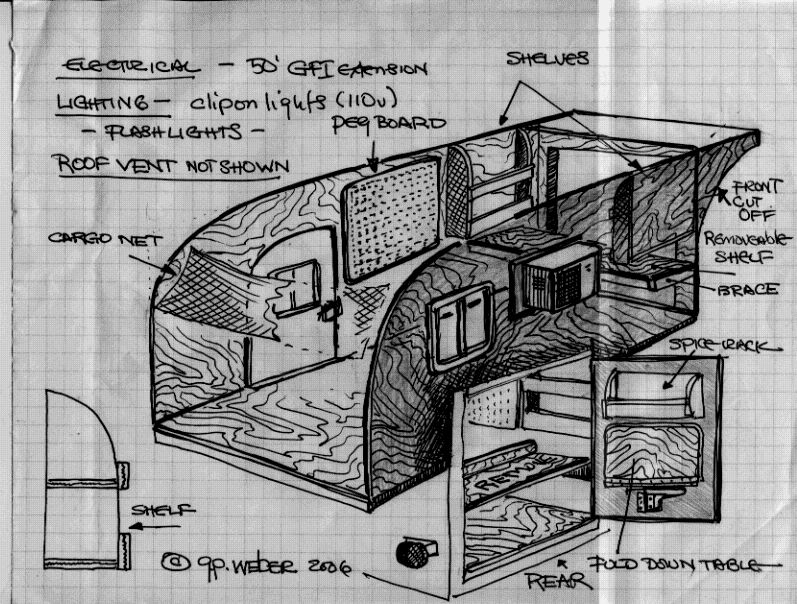 ELECTRICAL - 50' GFI EXTENSION
LIGHTING - clip on lights (110v)
- FLASHLIGHTS -
ROOF VENT NOT SHOWN
PEG BOARD
SHELVES
CARGO NET
FRONT
CUT
OFF
REMOVEABLE
SHELF
BRACE
SPICE RACK
SHELF
© g.p. WEBER 2006
REAR
FOLD DOWN TABLE